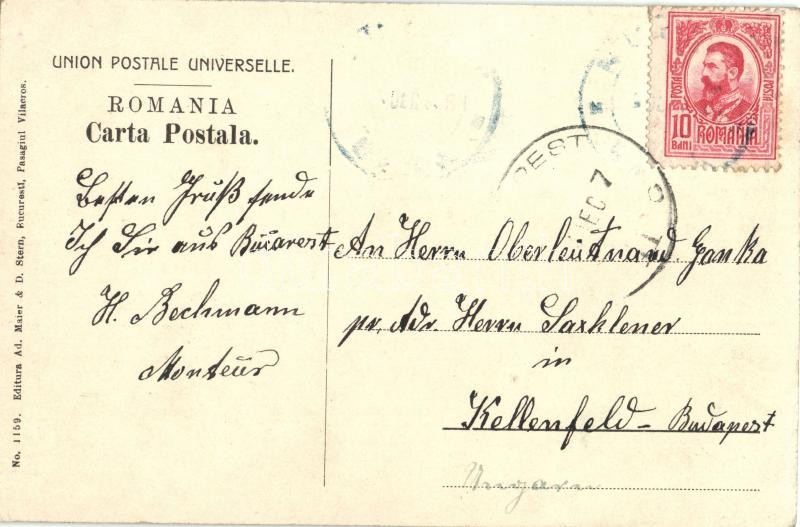 UNION POSTALE UNIVERSELLE.
ROMANIA
Carta Postala.
Besten Gruß sende
Ich Sie aus Bucarest
H. Bechmann
Monteur
An Herrn Oberleutnand Ganka
pr. Adr. Herrn Saxlehner
in
Kellenfeld - Budapest
Ungarn
No. 1159. Editura Ad. Maier & D. Stern, Bucuresti, Pasagiul Vilacros.
POSTA
POSTA
10
BANI
ROMANIA
PEST
DEC 7